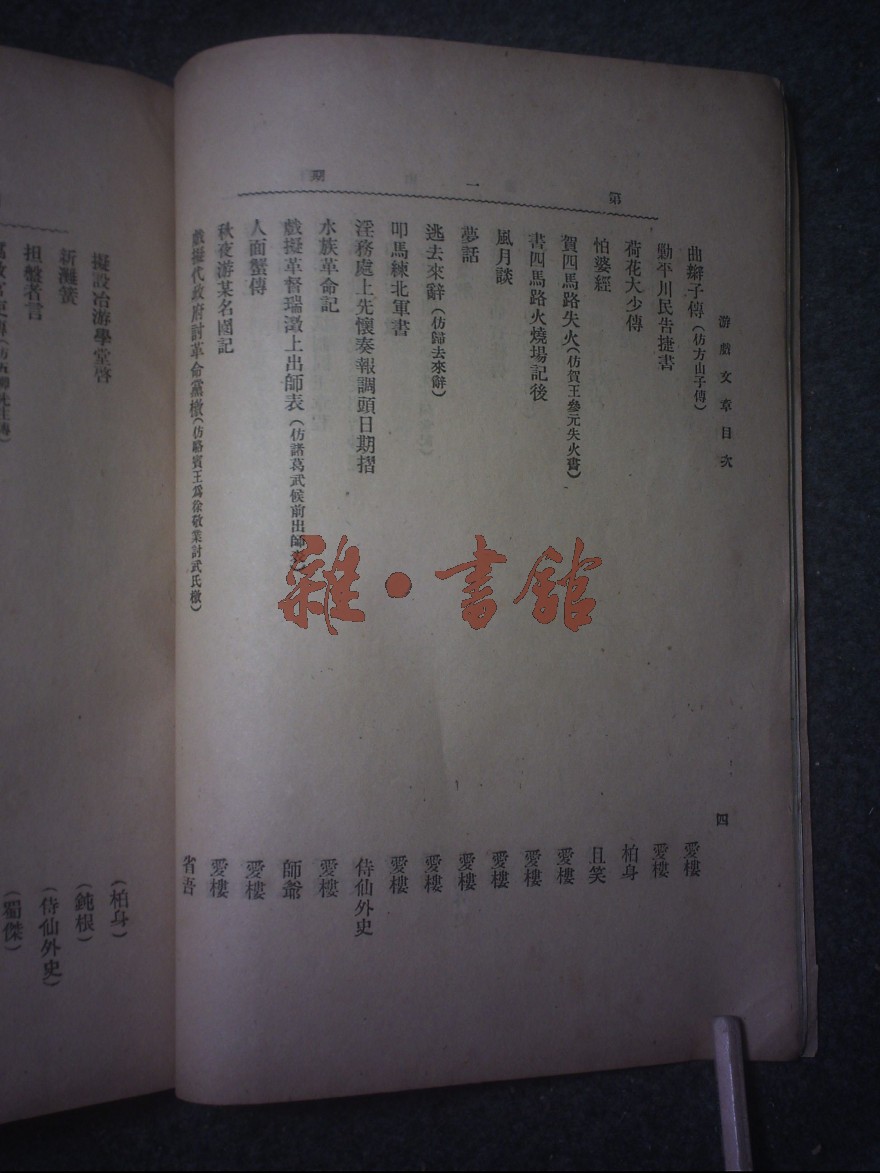 游戲文章目次
四
第一期
曲辮子傳(仿方山子傳) 愛樓
勦平川民告捷書 愛樓
荷花大少傳 柏身
怕婆經 且笑
賀四馬路失火(仿賀王參元失火書) 愛樓
書四馬路火燒塲記後 愛樓
風月談 愛樓
夢話 愛樓
逃去來辭(仿歸去來辭) 愛樓
叩馬練北軍書 愛樓
淫務處上先懷奏報調頭日期摺 侍仙外史
水族革命記 愛樓
戲擬革督瑞澂上出師表(仿諸葛武候前出師表) 師爺
人面蟹傳 愛樓
秋夜游某名園記 愛樓
戲擬代政府討革命黨檄(仿駱賓王爲徐敬業討武氏檄) 省吾
擬設冶游學堂啓 (柏身)
新灘簧 (鈍根)
担盤者言 (侍仙外史)
(蜀傑)
雜·書館